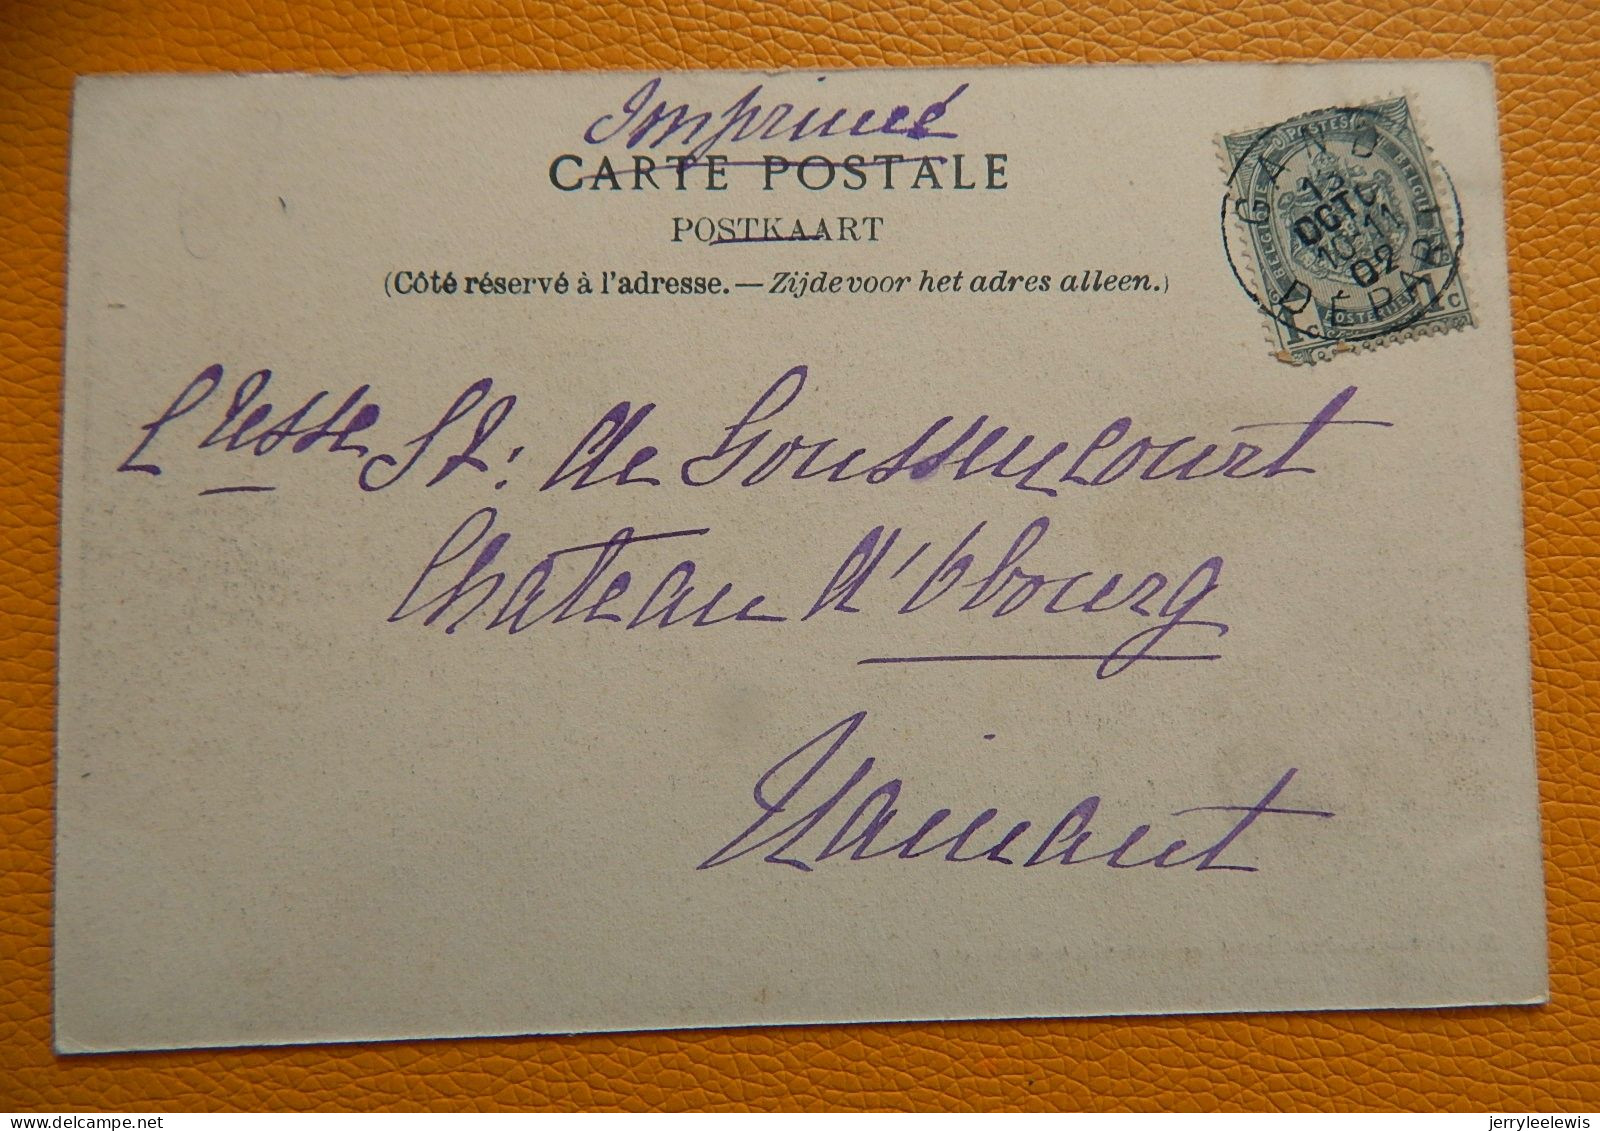 Imprimé
CARTE POSTALE
POSTKAART
(Côté réservé à l'adresse. — Zijde voor het adres alleen.)
POSTES
BELGIQUE
BELGIË
POSTERIJEN
1 c 1 c
GAND
13
OCTO
10-11
02
DÉPART
Ctesse St: de Goussencourt
Chateau d'Obourg
Hainaut
jerryleelewis